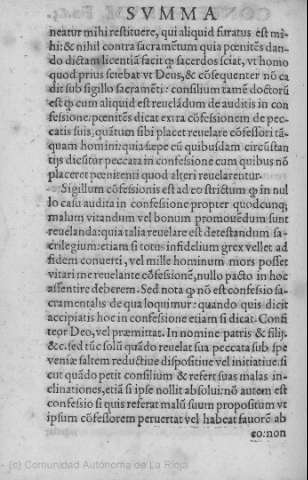 SVMMA
neatur mihi restituere, qui aliquid furatus est mi
hi: & nihil contra sacramẽtum quia pœnitẽs dan-
do dictam licentiã facit ꝙ sacerdos sciat, vt homo
quod prius sciebat vt Deus, & cõsequenter nõ ca
dit sub sigillo sacramẽti: consilium tamẽ doctorũ
est ꝙ cum aliquid est reuelãdum de auditis in con
fessione: pœnitẽs dicat extra cõfessionem de pec-
catis suis, quãtum sibi placet reuelare cõfessori tã-
quam homini: quia sæpe cũ quibusdam circũstan
tijs dicũtur peccata in confessione cum quibus nõ
placeret pœnitenti quod alteri reuelarentur.
Sigillum cõfessionis est ad eo strictum ꝙ in nul
lo casu audita in confessione propter quodcunq;
malum vitandum vel bonum promouẽdum sunt
reuelanda: quia talia reuelare est detestandum sa-
crilegium: etiam si totus infidelium grex vellet ad
fidem conuerti, vel mille hominum mors posset
vitari me reuelante cõfessionẽ, nullo pacto in hoc
assentire deberem. Sed nota ꝙ nõ est confessio sa-
cramentalis de qua loquimur: quando quis dicit
accipiatis hoc in confessione etiam si dicat. Confi
teor Deo, vel præmittat. In nomine patris & filij.
&c. sed tũc solũ quãdo reuelat sua peccata sub spe
veniæ saltem reductiue dispositiue vel initiatiue. si
cut quãdo petit consilium & refert suas malas in-
clinationes, etiã si ipse nollit absolui: nõ autem est
confessio si quis referat malũ suum propositum vt
ipsum cõfessorem peruertat vel habeat fauorẽ ab
eo: non
(c) Comunidad Autónoma de La Rioja